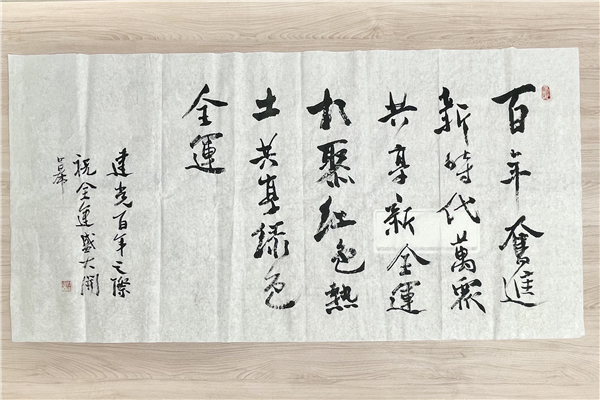 百年奮進
新時代萬衆
共享新全運
相聚紅色熱
土共享綠色
全運
建党百年之際
祝全運盛大開
幕